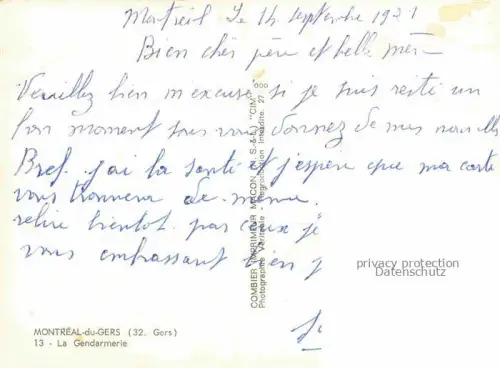 Montreil Le 14 septembre 1971
Bien cher père et belle mère
Veuillez bien m'excusé si je suis resté un
bon moment sans vous donnez de mes nouvelles
Bref. j'ai la santé et j'espère que ma carte
vous trouvera de même.
relire bientot. par ceux je
vous embrassant bien
COMBIER IMPRIMEUR MACON (S.-&-L.) "CIM"
Photographie Véritable - Reproduction Interdite
privacy protection
Datenschutz
MONTRÉAL-du-GERS (32. Gers)
13 - La Gendarmerie